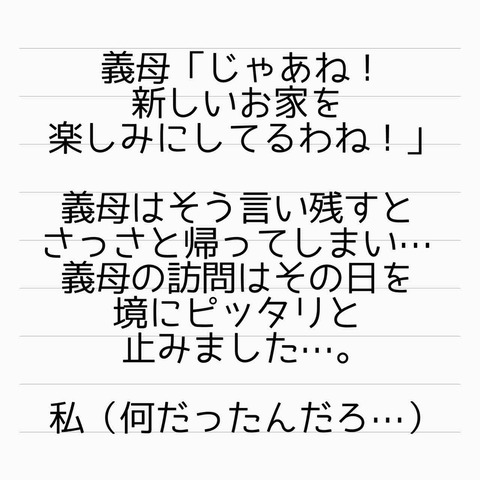 義母「じゃあね！
新しいお家を
楽しみにしてるわね！」
義母はそう言い残すと
さっさと帰ってしまい…
義母の訪問はその日を
境にピッタリと
止みました…。
私（何だったんだろ…）